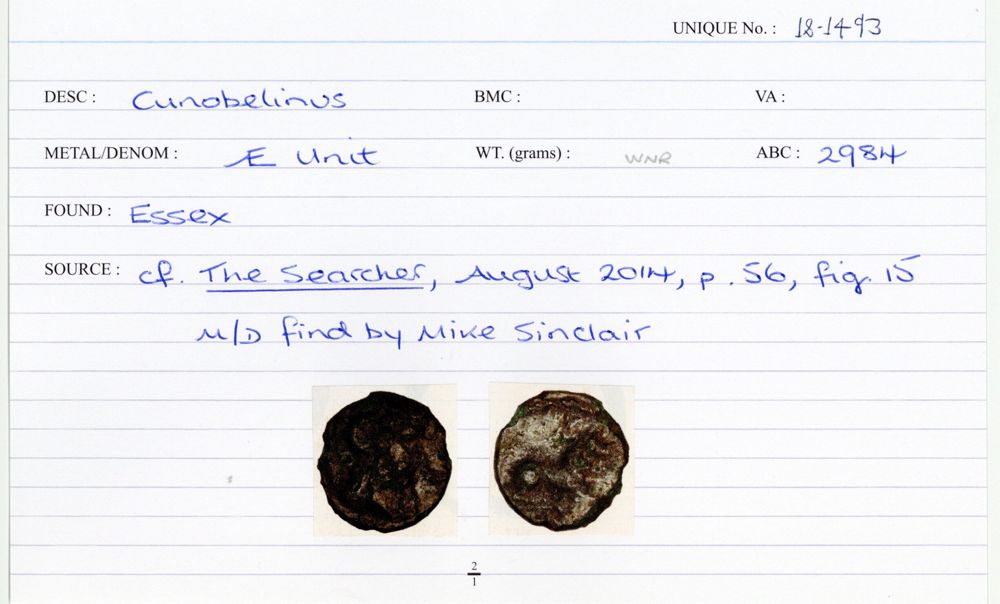 UNIQUE No. : 18-1493
DESC : Cunobelinus BMC : VA :
METAL/DENOM : Æ Unit WT. (grams) : WNR ABC : 2984
FOUND : Essex
SOURCE : cf. The Searcher, August 2014, p. 56, fig. 15
M/D find by Mike Sinclair
2
1